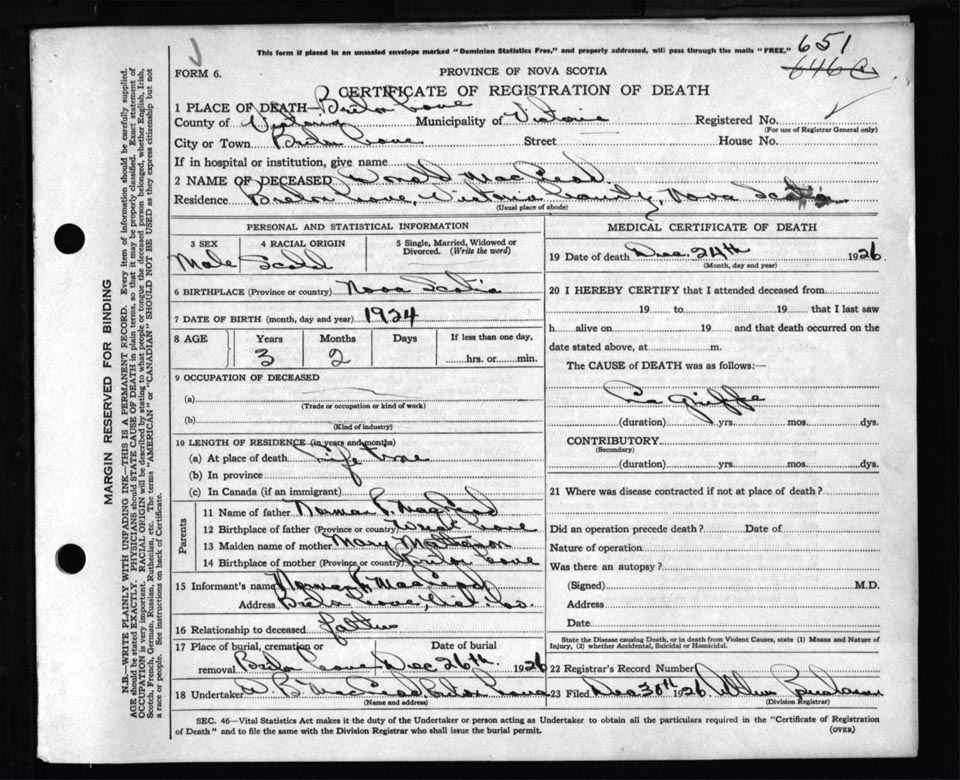 This form if placed in an unsealed envelope marked "Dominion Statistics Free," and properly addressed, will pass through the mails "FREE."
651
646
FORM 6.
PROVINCE OF NOVA SCOTIA
CERTIFICATE OF REGISTRATION OF DEATH
1 PLACE OF DEATH— Breton Cove
County of Victoria Municipality of Victoria Registered No.
(For use of Registrar General only)
City or Town Breton Cove Street House No.
If in hospital or institution, give name
2 NAME OF DECEASED Donald MacLeod
Residence Breton Cove, Victoria County, Nova Scotia
(Usual place of abode)
PERSONAL AND STATISTICAL INFORMATION
3 SEX 4 RACIAL ORIGIN 5 Single, Married, Widowed or Divorced. (Write the word)
Male Scotch
6 BIRTHPLACE (Province or country) Nova Scotia
7 DATE OF BIRTH (month, day and year) 1924
8 AGE Years Months Days If less than one day,
3 2 hrs. or min.
9 OCCUPATION OF DECEASED
(a)
(Trade or occupation or kind of work)
(b)
(Kind of industry)
10 LENGTH OF RESIDENCE (in years and months)
(a) At place of death Life time
(b) In province
(c) In Canada (if an immigrant)
Parents
11 Name of father Norman MacLeod
12 Birthplace of father (Province or country) Cove
13 Maiden name of mother Mary Matheson
14 Birthplace of mother (Province or country) Breton Cove
15 Informant's name Norman MacLeod
Address Breton Cove, Vict. Co.
16 Relationship to deceased father
17 Place of burial, cremation or removal Date of burial
Breton Cove Dec 26th. 1926
18 Undertaker MacLeod, Breton Cove
(Name and address)
MEDICAL CERTIFICATE OF DEATH
19 Date of death Dec. 24th 1926
(Month, day and year)
20 I HEREBY CERTIFY that I attended deceased from
19 to 19 that I last saw
h alive on 19 and that death occurred on the
date stated above, at m.
The CAUSE of DEATH was as follows:—
La Grippe
(duration) yrs. mos. dys.
CONTRIBUTORY
(Secondary)
(duration) yrs. mos. dys.
21 Where was disease contracted if not at place of death?
Did an operation precede death? Date of
Nature of operation
Was there an autopsy?
(Signed) M.D.
Address
Date
State the Disease causing Death, or in death from Violent Causes, state (1) Means and Nature of
Injury, (2) whether Accidental, Suicidal or Homicidal.
22 Registrar's Record Number
23 Filed Dec 30th 1926
(Division Registrar)
SEC. 46—Vital Statistics Act makes it the duty of the Undertaker or person acting as Undertaker to obtain all the particulars required in the "Certificate of Registration
of Death" and to file the same with the Division Registrar who shall issue the burial permit.
(OVER)
MARGIN RESERVED FOR BINDING
N.B.—WRITE PLAINLY WITH UNFADING INK—THIS IS A PERMANENT RECORD. Every item of information should be carefully supplied.
AGE should be stated EXACTLY. PHYSICIANS should STATE CAUSE OF DEATH in plain terms, so that it may be properly classified. Exact statement of
OCCUPATION is very important. RACIAL ORIGIN will be described by stating to what people or tongue the deceased person belonged, whether English, Irish,
Scotch, French, German, Russian, Ruthenian, etc. The terms "AMERICAN" or "CANADIAN" SHOULD NOT BE USED as they express citizenship but not
a race or people. See instructions on back of Certificate.